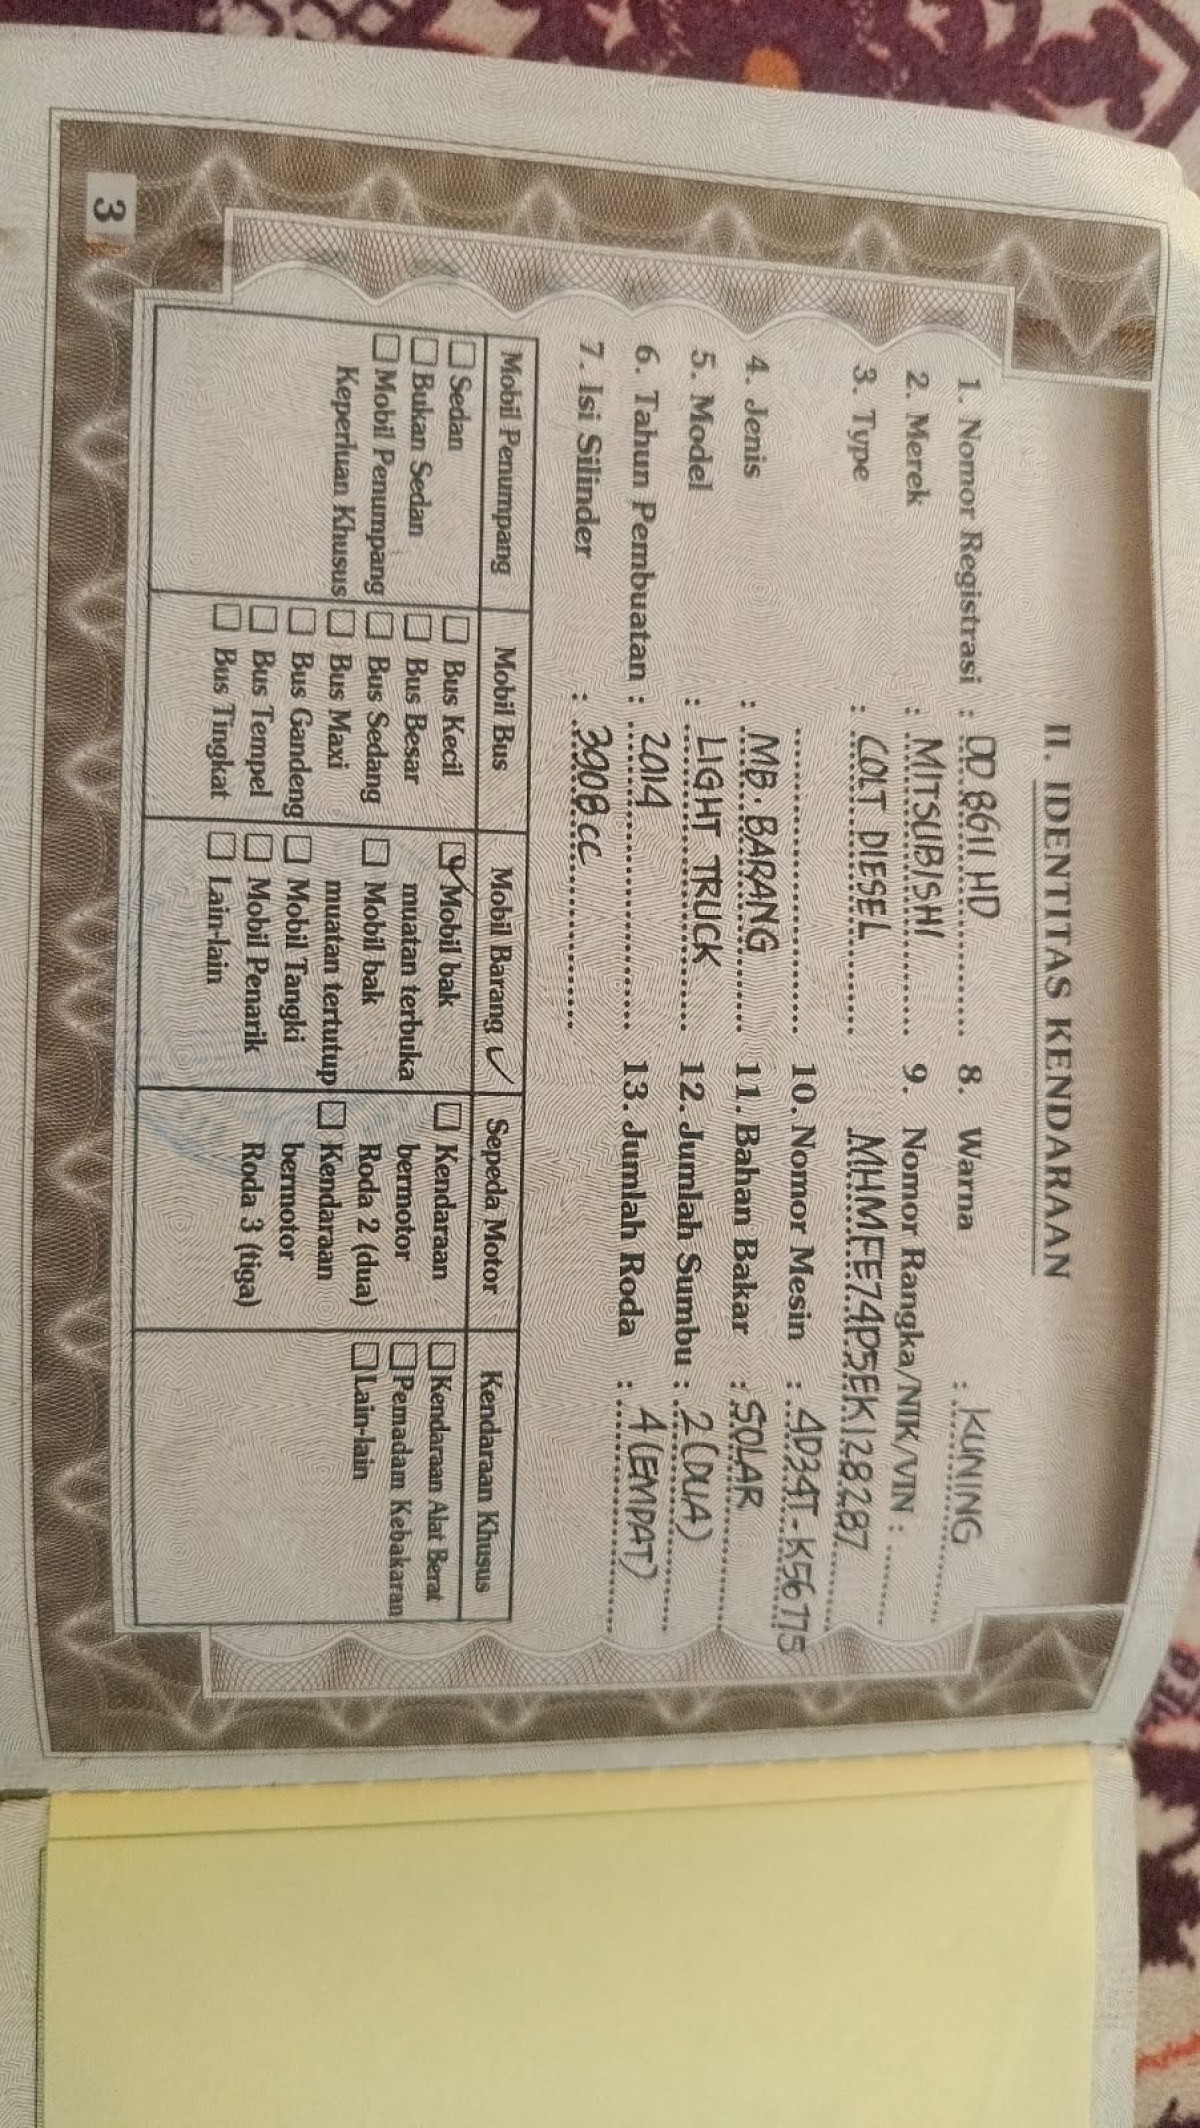 II. IDENTITAS KENDARAAN
1. Nomor Registrasi : DD 8611 HD
2. Merek : MITSUBISHI
3. Type : COLT DIESEL
4. Jenis : MB. BARANG
5. Model : LIGHT TRUCK
6. Tahun Pembuatan : 2014
7. Isi Silinder : 3908 CC
8. Warna : KUNING
9. Nomor Rangka/NIK/VIN :
MHMFE74P5EK128287
10. Nomor Mesin : 4D34T-K56775
11. Bahan Bakar : SOLAR
12. Jumlah Sumbu : 2 (DUA)
13. Jumlah Roda : 4 (EMPAT)
Mobil Penumpang
Sedan
Bukan Sedan
Mobil Penumpang
Keperluan Khusus
Mobil Bus
Bus Kecil
Bus Besar
Bus Sedang
Bus Maxi
Bus Gandeng
Bus Tempel
Bus Tingkat
Mobil Barang ✓
✓ Mobil bak
muatan terbuka
Mobil bak
muatan tertutup
Mobil Tangki
Mobil Penarik
Lain-lain
Sepeda Motor
Kendaraan
bermotor
Roda 2 (dua)
Kendaraan
bermotor
Roda 3 (tiga)
Kendaraan Khusus
Kendaraan Alat Berat
Pemadam Kebakaran
Lain-lain
3